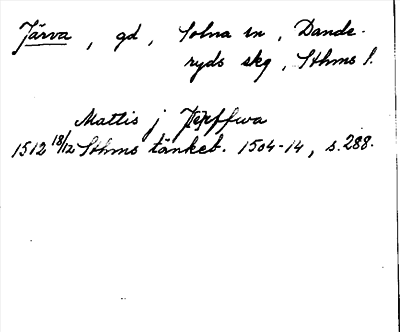 Järva, gd, Solna sn, Dande-
ryds skg, Sthms l.
Mattis j
1512 18/12 Sthms tänkeb. 1504-14, s. 288.